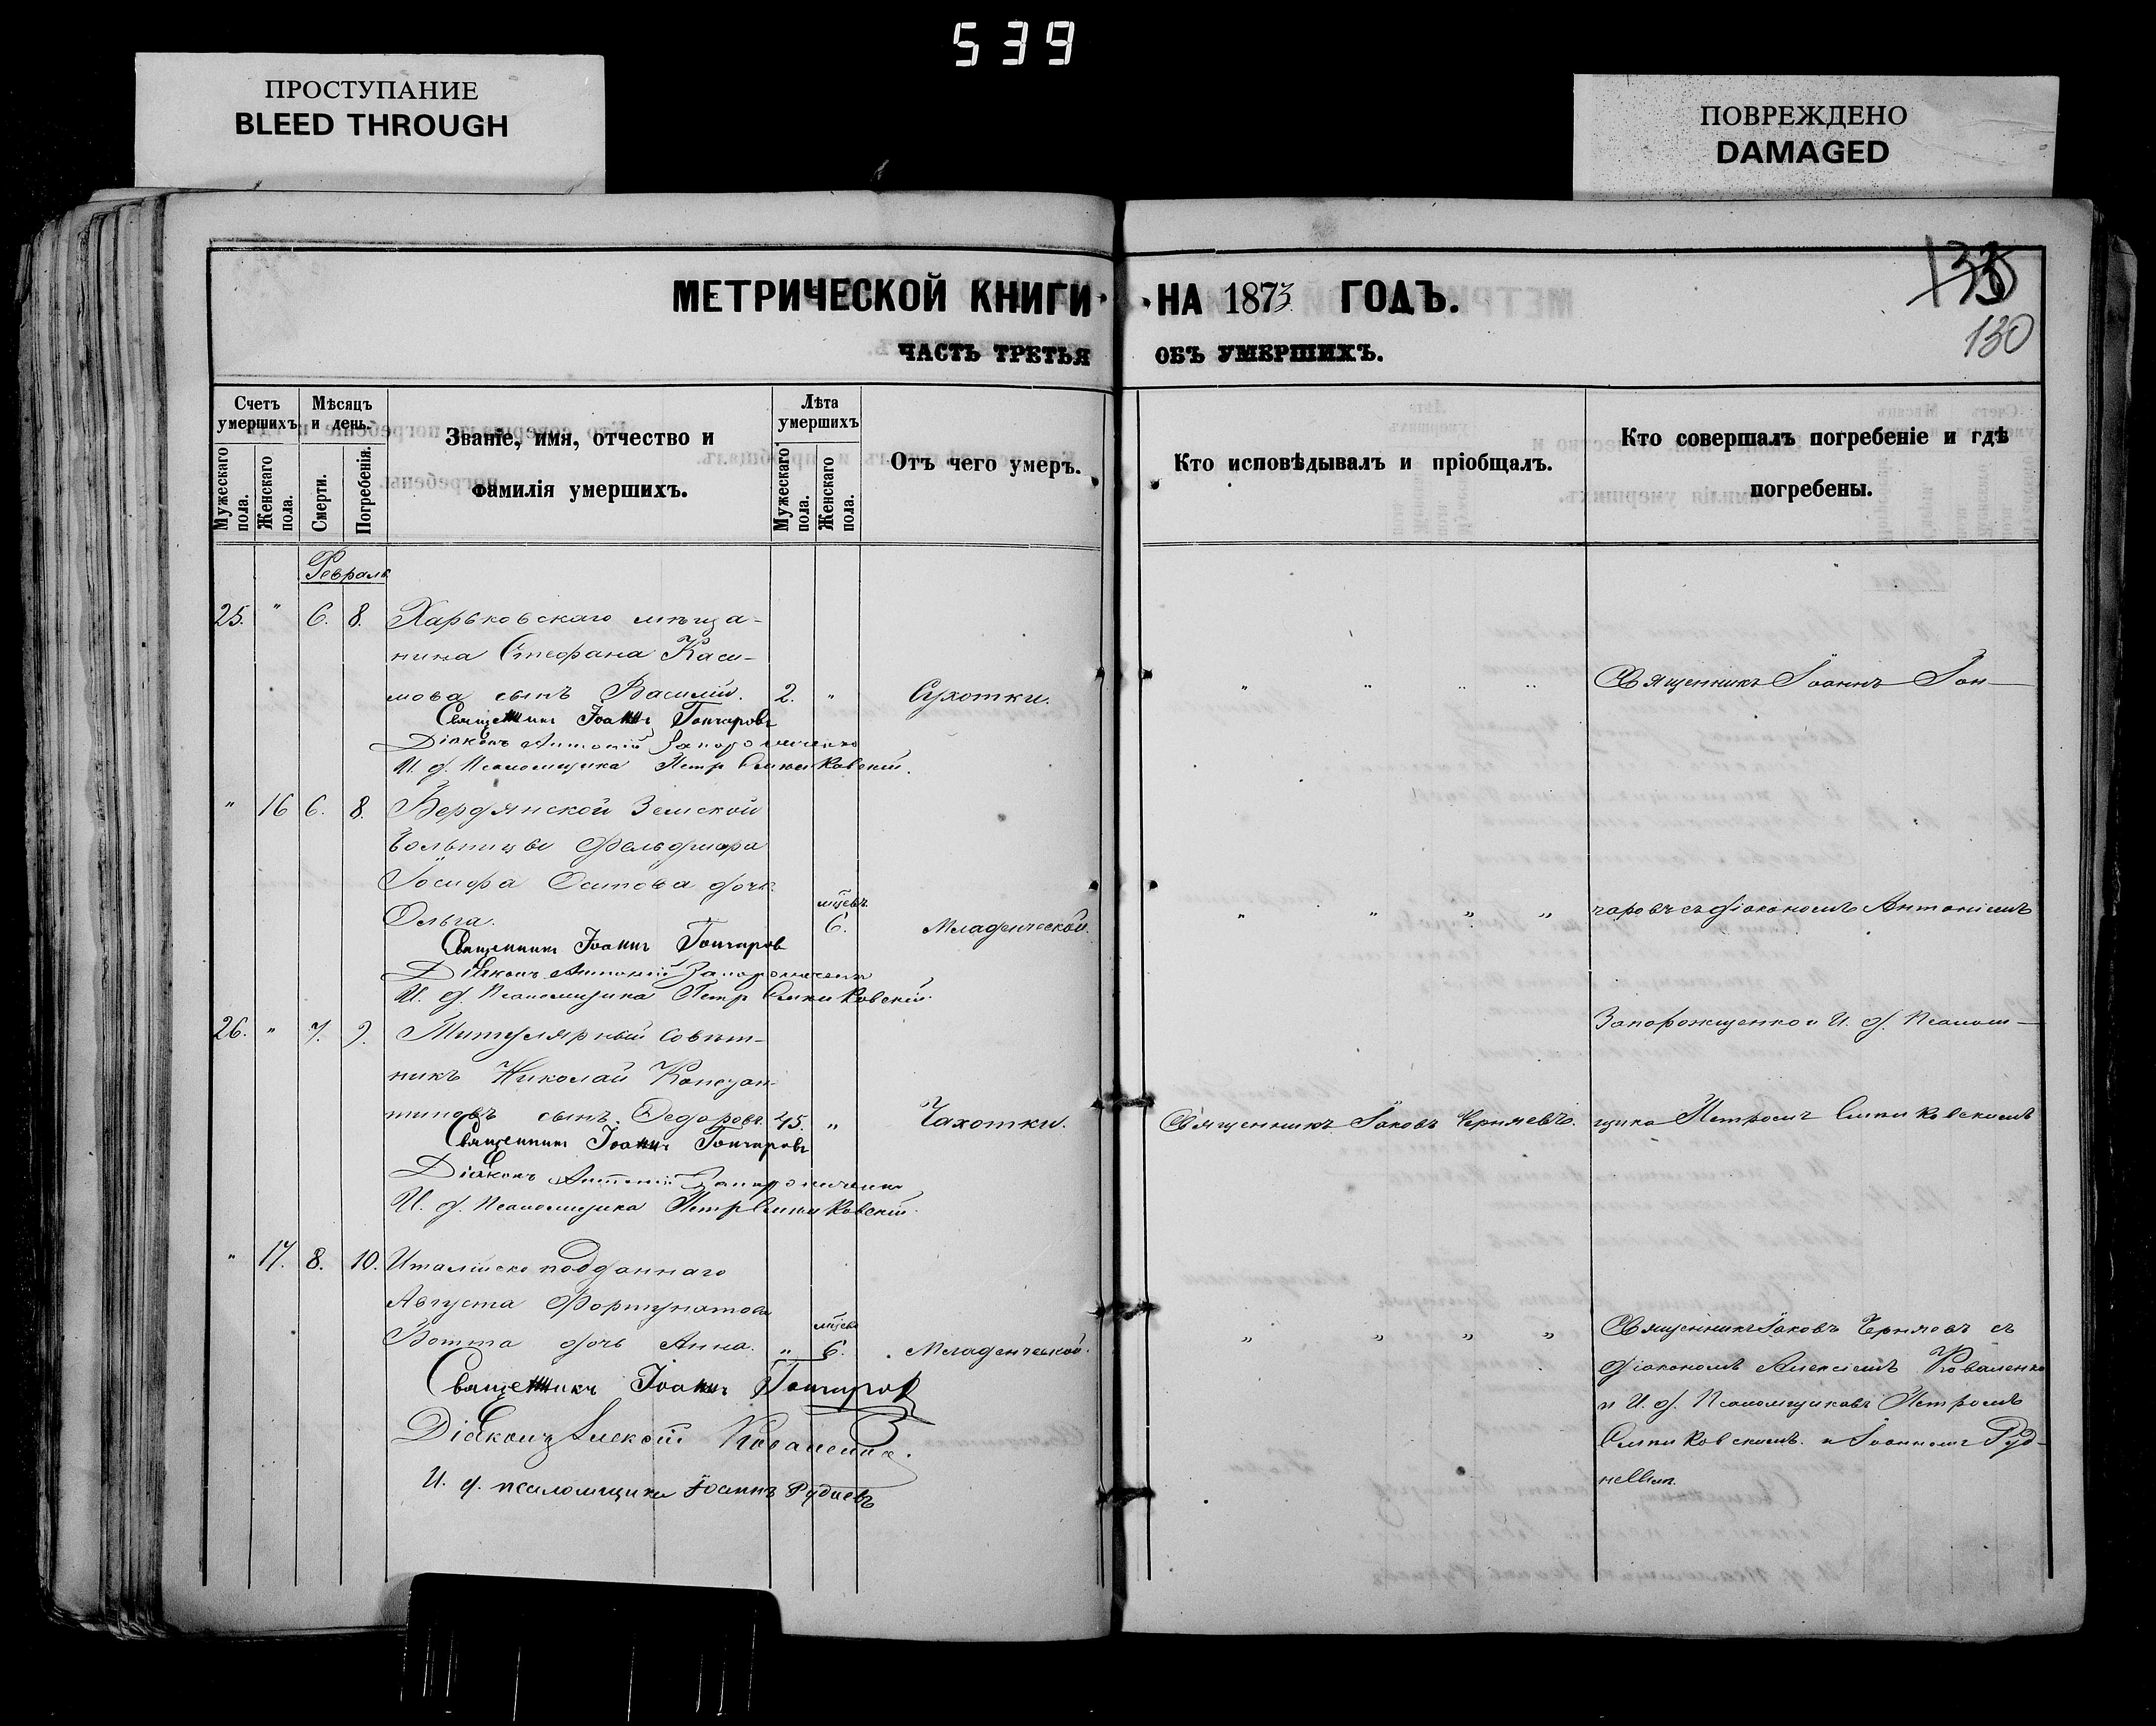 539
ПРОСТУПАНИЕ
BLEED THROUGH
ПОВРЕЖДЕНО
DAMAGED
МЕТРИЧЕСКОЙ КНИГИ НА 1873 ГОДЪ.
130
ЧАСТЬ ТРЕТЬЯ ОБЪ УМЕРШИХЪ.
Счетъ умершихъ
Мужескаго пола.
Женскаго пола.
Мѣсяцъ и день.
Смерти.
Погребенія.
Званіе, имя, отчество и
фамилія умершихъ.
Лѣта умершихъ
Мужескаго пола.
Женскаго пола.
Отъ чего умеръ.
Кто исповѣдывалъ и пріобщалъ.
Кто совершалъ погребеніе и гдѣ
погребены.
Февраль
25. " 6. 8. Харьковскаго мѣща-
нина Стефана Каси-
мова сынъ Василій. 2. " Сухотки. " " " " Священникъ Іоаннъ Гон-
Священникъ Іоаннъ Гончаровъ
Діаконъ Антоній Запорожченко
И. д. Псаломщика Петръ
" 16 6. 8. Бердянской Земской
больницы фельдшера
Іосифа Осипова дочь
Ольга. мѣсяцъ 6. Младенческой. " " " " чаровъ съ діакономъ Антоніемъ
Священникъ Іоаннъ Гончаров
Діаконъ Антоній
И. д. Псаломщика Петръ
26. " 7. 9. Титулярный Совѣт-
никъ Николай Констан-
тиновъ сынъ Федоровъ. 45. " Чахотки. Священникъ Іаковъ Черняевъ. щика Петромъ
Запорожщенко и И. д. Псалом-
Священникъ Іоаннъ Гончаровъ
Діаконъ Антоній
И. д. Псаломщика Петръ
" 17. 8. 10. Италійско подданнаго
Августа Фортунатова
Вотта дочь Анна. " 6. Младенческой. " " " " Священникъ Іаковъ Черняевъ съ
Священникъ Іоаннъ Гончаров
діакономъ Алексіемъ Коваленко
и И. д. Псаломщиковъ Петромъ
Діаконъ Алексій Коваленко.
и Іоанномъ Руд-
невымъ.
И. д. псаломщика Іоаннъ Рудневъ